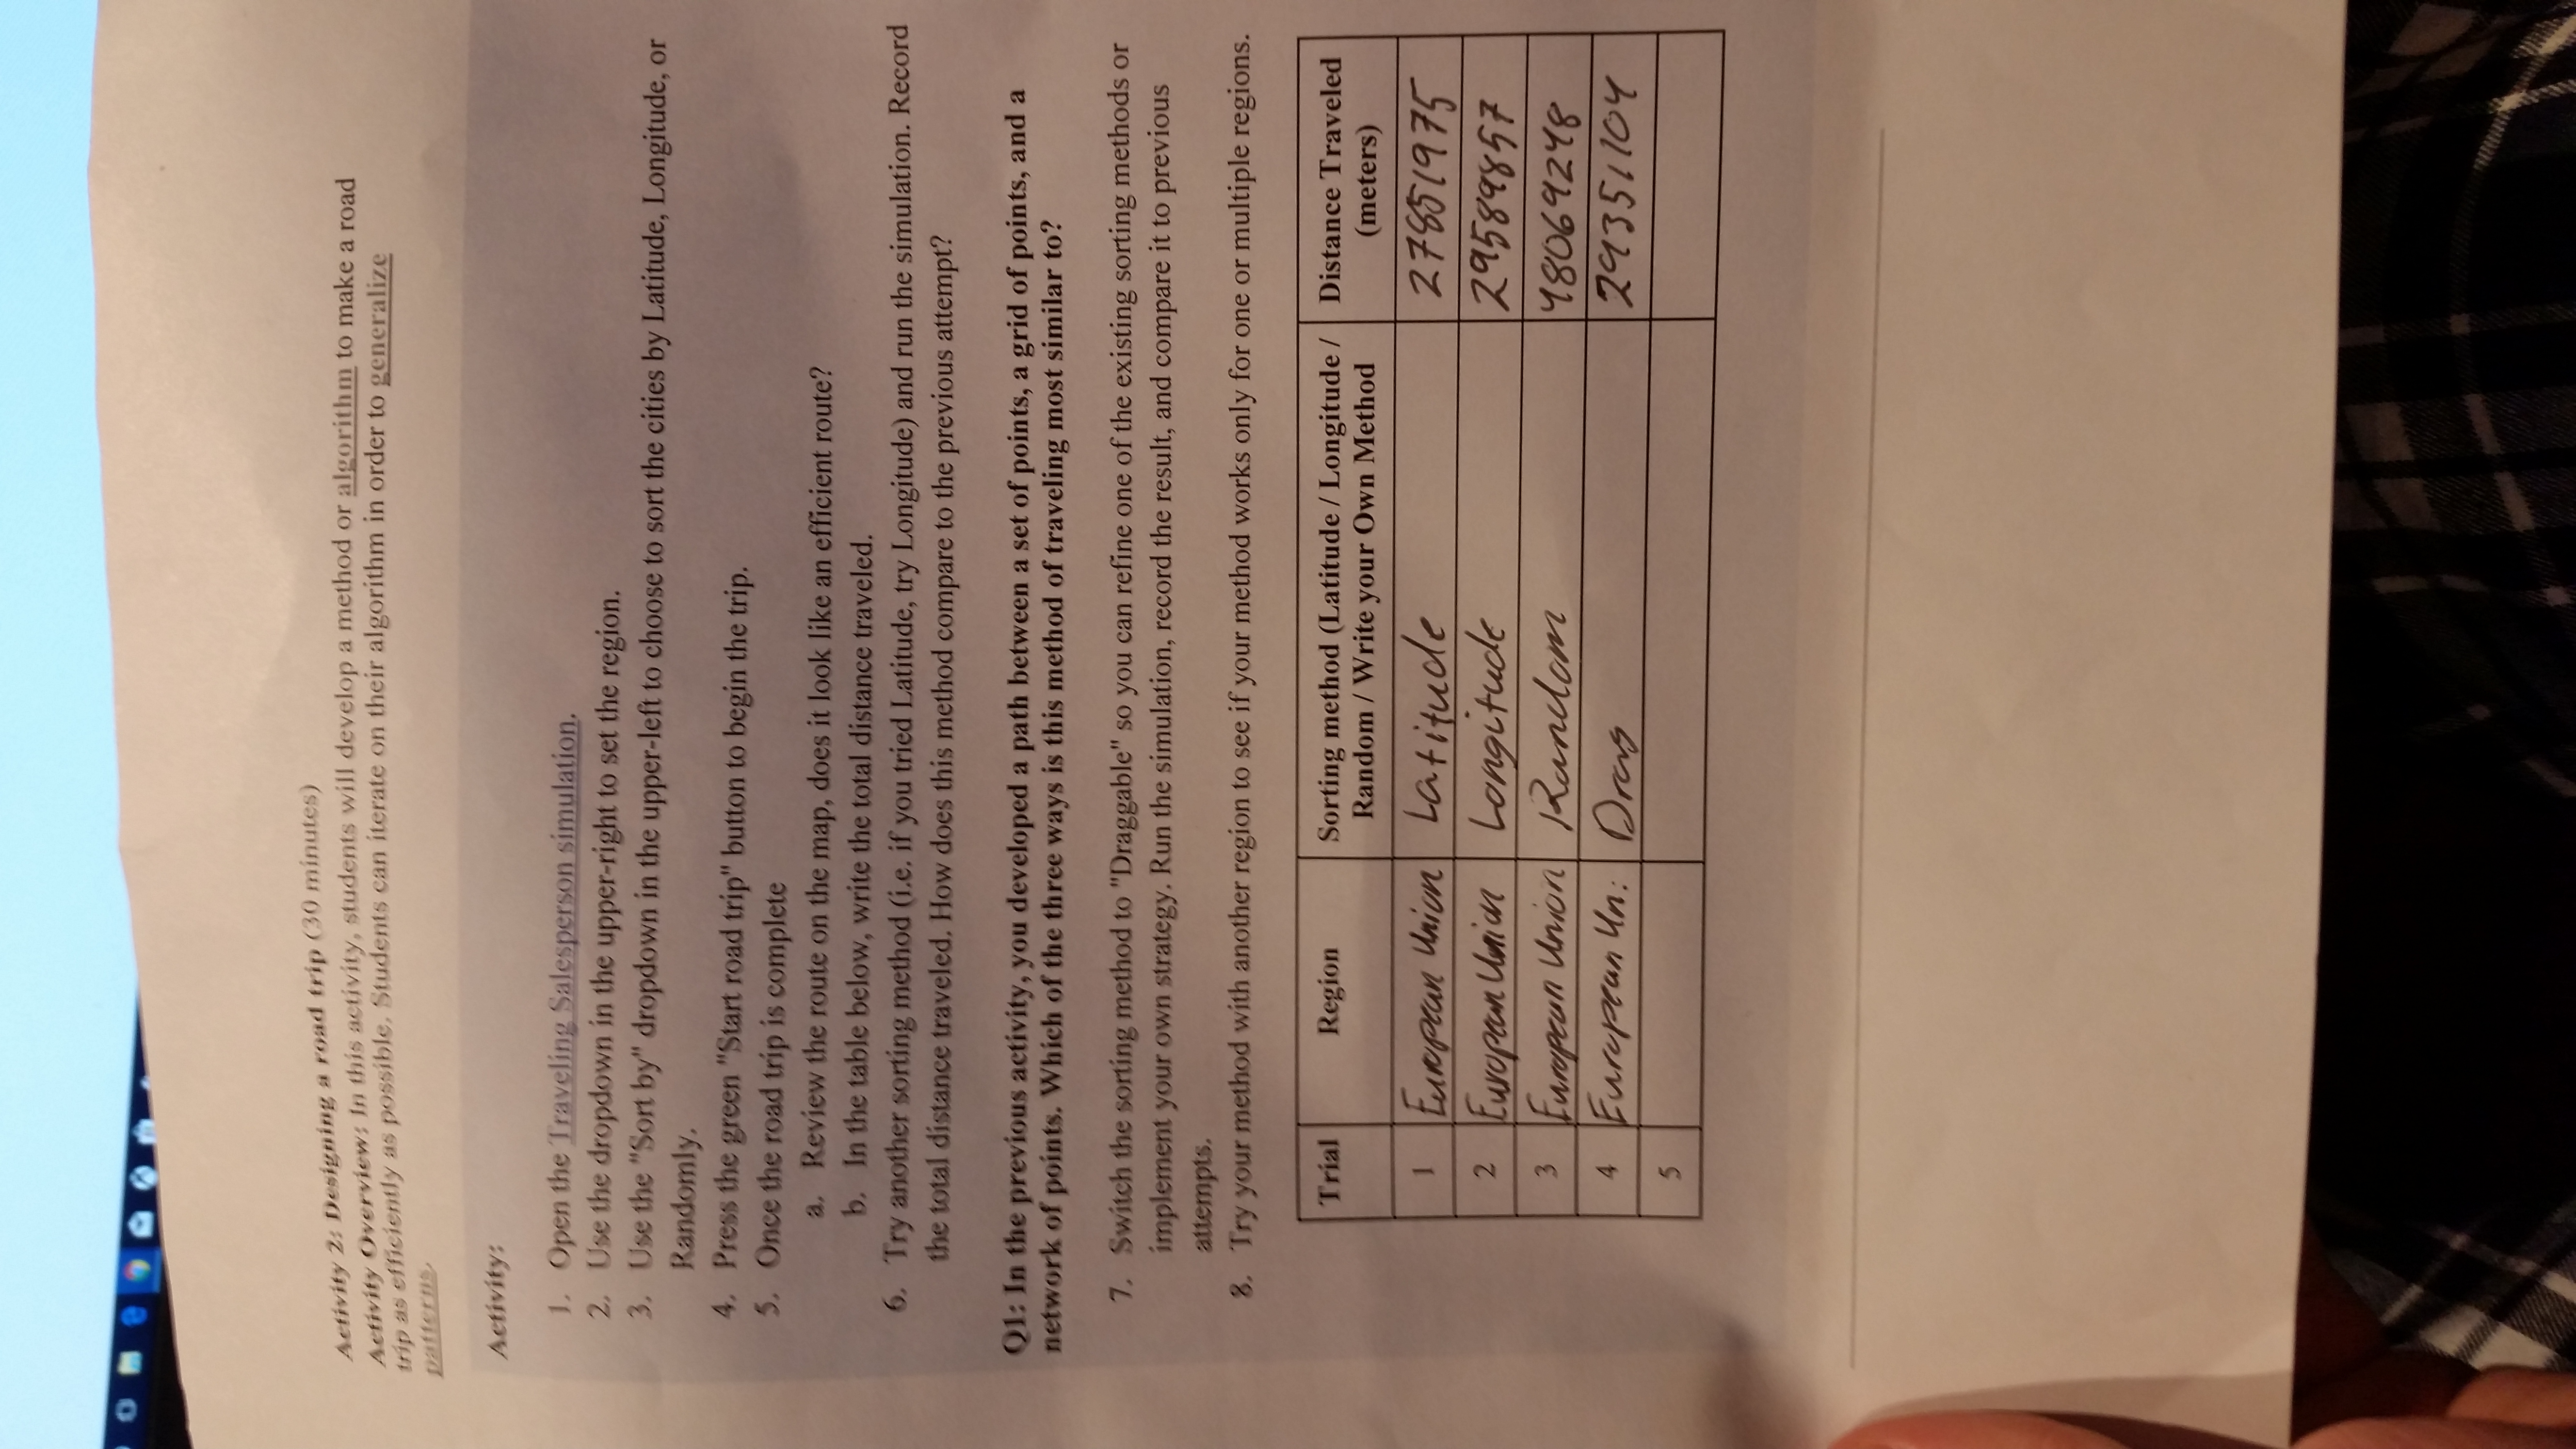 Activity 2: Designing a road trip (30 minutes)
Activity Overview: In this activity, students will develop a method or algorithm to make a road
trip as efficiently as possible. Students can iterate on their algorithm in order to generalize
patterns.
Activity:
1. Open the Traveling Salesperson simulation.
2. Use the dropdown in the upper-right to set the region.
3. Use the "Sort by" dropdown in the upper-left to choose to sort the cities by Latitude, Longitude, or
Randomly.
4. Press the green "Start road trip" button to begin the trip.
5. Once the road trip is complete
a. Review the route on the map, does it look like an efficient route?
b. In the table below, write the total distance traveled.
6. Try another sorting method (i.e. if you tried Latitude, try Longitude) and run the simulation. Record
the total distance traveled. How does this method compare to the previous attempt?
Q1: In the previous activity, you developed a path between a set of points, a grid of points, and a
network of points. Which of the three ways is this method of traveling most similar to?
7. Switch the sorting method to "Draggable" so you can refine one of the existing sorting methods or
implement your own strategy. Run the simulation, record the result, and compare it to previous
attempts.
8. Try your method with another region to see if your method works only for one or multiple regions.
Trial Region Sorting method (Latitude / Longitude / Distance Traveled
Random / Write your Own Method (meters)
1 European Union Latitude 27851975
2 European Union Longitude 29589857
3 European Union Random 48069248
4 European Un: Drag 29351104
5